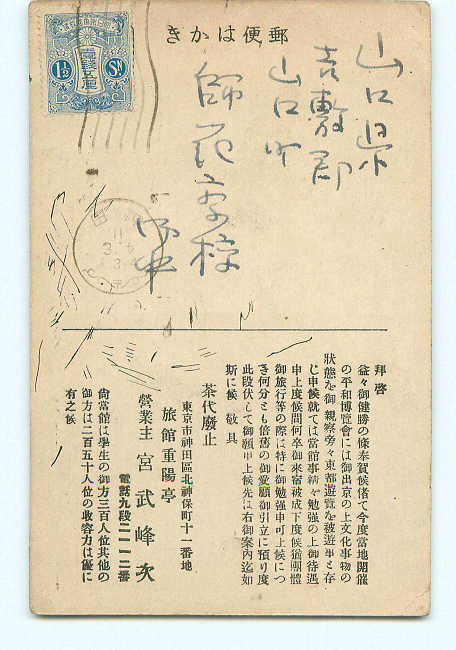 郵便はかき
1½ Sn
山口県
吉敷郡
山口町
師範学校
御中
拜啓
益々御健勝の條奉賀候偖て今度當地開催
の平和博覽會には御出京の上文化事物の
狀態を御親察旁々東都遊覽を被遊事と存
じ申候就ては當館事精々勉强の上御待遇
申上度候間何卒御來宿被成下度候猶團體
御旅行等の際は特に御勉强申可上候につ
き何分とも倍舊の御愛顧御引立に預り度
此段伏して御願申上候先は右御案內迄如
斯に候 敬具
茶代廢止
東京市神田區北神保町十一番地
旅館重陽亭
營業主 宮武峰次
電話九段二一一二番
尙當館は學生の御方三百人位其他の
御方は二百五十人位の收容力は優に
有之候